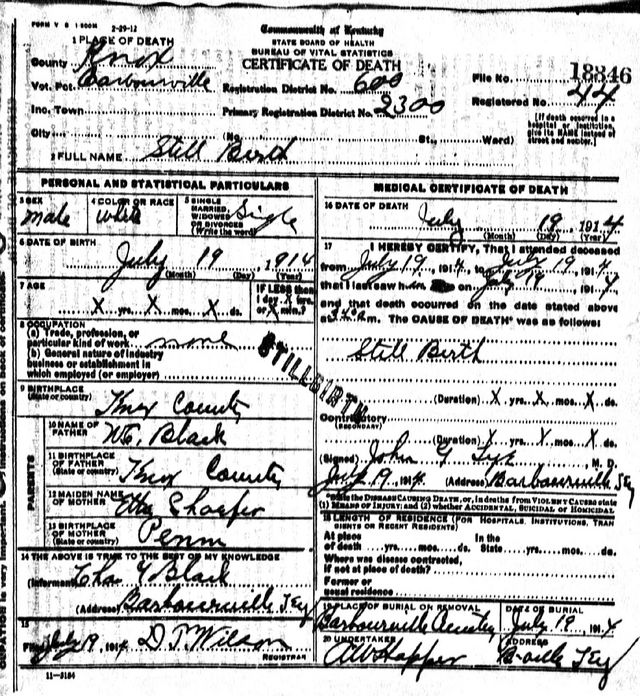 FORM V S 1 500M
2-29-12
Commonwealth of Kentucky
STATE BOARD OF HEALTH
BUREAU OF VITAL STATISTICS
CERTIFICATE OF DEATH
1 PLACE OF DEATH
County Knox
Vot. Pct. Barbourville
Inc. Town
City
Registration District No. 600
Primary Registration District No. 2300
File No. 18346
Registered No. 44
(No. St., Ward)
[If death occurred in a hospital or institution, give its NAME instead of street and number.]
2 FULL NAME Still Birth
PERSONAL AND STATISTICAL PARTICULARS
3 SEX male
4 COLOR OR RACE White
5 SINGLE MARRIED, WIDOWED OR DIVORCED (Write the word) Sigle
6 DATE OF BIRTH July 19, 1914
(Month) (Day) (Year)
7 AGE
X yrs. X mos. X ds.
IF LESS than 1 day X hrs. or X min.?
8 OCCUPATION
(a) Trade, profession, or particular kind of work none
(b) General nature of industry business or establishment in which employed (or employer)
STILLBIRTH
9 BIRTHPLACE
(State or country) Knox County
PARENTS
10 NAME OF FATHER Wm. Black
11 BIRTHPLACE OF FATHER
(State or country) Knox County
12 MAIDEN NAME OF MOTHER Etta
13 BIRTHPLACE OF MOTHER
(State or country) Penn
14 THE ABOVE IS TRUE TO THE BEST OF MY KNOWLEDGE
(Informant) Chas Y Black
(Address) Barbourville Ky
15
Filed July 19, 1914 D. T. Wilson
REGISTRAR
11-3184
MEDICAL CERTIFICATE OF DEATH
16 DATE OF DEATH
July 19, 1914
(Month) (Day) (Year)
17 I HEREBY CERTIFY, That I attended deceased
from July 19, 1914, to July 19, 1914
that I last saw h alive on July 19, 1914
and that death occurred on the date stated above
at m. The CAUSE OF DEATH* was as follows:
Still Birth
(Duration) X yrs. X mos. X ds.
Contributory
(SECONDARY)
(Duration) X yrs. X mos. X ds.
(Signed) John G Tye, M. D.
July 19 1914 (Address) Barbourville Ky
*State the DISEASE CAUSING DEATH, or, in deaths from VIOLENT CAUSES state
(1) MEANS OF INJURY; and (2) whether ACCIDENTAL, SUICIDAL or HOMICIDAL
18 LENGTH OF RESIDENCE (FOR HOSPITALS, INSTITUTIONS, TRANSIENTS OR RECENT RESIDENTS)
At place of death yrs. mos. ds.
In the State yrs. mos. ds.
Where was disease contracted,
if not at place of death?
Former or
usual residence
19 PLACE OF BURIAL OR REMOVAL
Barbourville Cemetery
DATE OF BURIAL
July 19, 1914
20 UNDERTAKER
ADDRESS
Ky